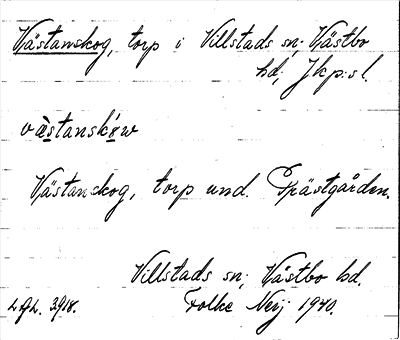 Västanskog, torp i Villstads sn; Västbo
hd; Jkp:s l.
västanskow
Västanskog, torp und. Prästgården.
Villstads sn; Västbo hd.
L.G.L. 3918. Folke Neij 1940.